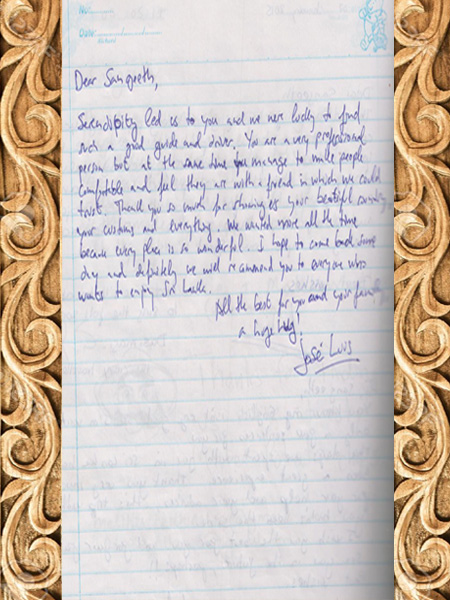 No:
Date:
Dear Sangeeth,
Serendipity led us to you and we were lucky to find
such a good guide and driver. You are a very professional
person but at the same time you manage to make people
comfortable and feel they are with a friend in which we could
trust. Thank you so much for showing us your beautiful country
your customs and everything. We wanted more all the time
because every place is so wonderful. I hope to come back some
day and definitely we will recommend you to everyone who
wants to enjoy Sri Lanka.
All the best for you and your family
a huge hug!
José Luis